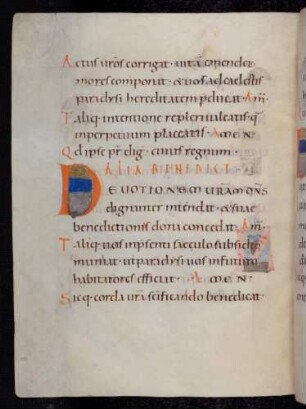 Actus uros corrigat · uitã emendet ·
mores componat · & uos ad caelestis
paradysi hereditatem pducat · Am̃
Taliq · intentione repleri ualeatis · q
in perpetuum placeatis · AMEN ·
Qd ipse pr̃ · dig · cuius regnum ·
ALIA BENEDICT
DEUOTIONEM URÃM DÑS
dignanter intendat · & suae
benedictionis dona concedat · Am̃
Taliq · uos in p̃senti saeculo subsidio
muniat · ut paradysi uos in futuro
habitatores efficiat · AMEN ·
Sicq · corda urã scificando benedicat ·